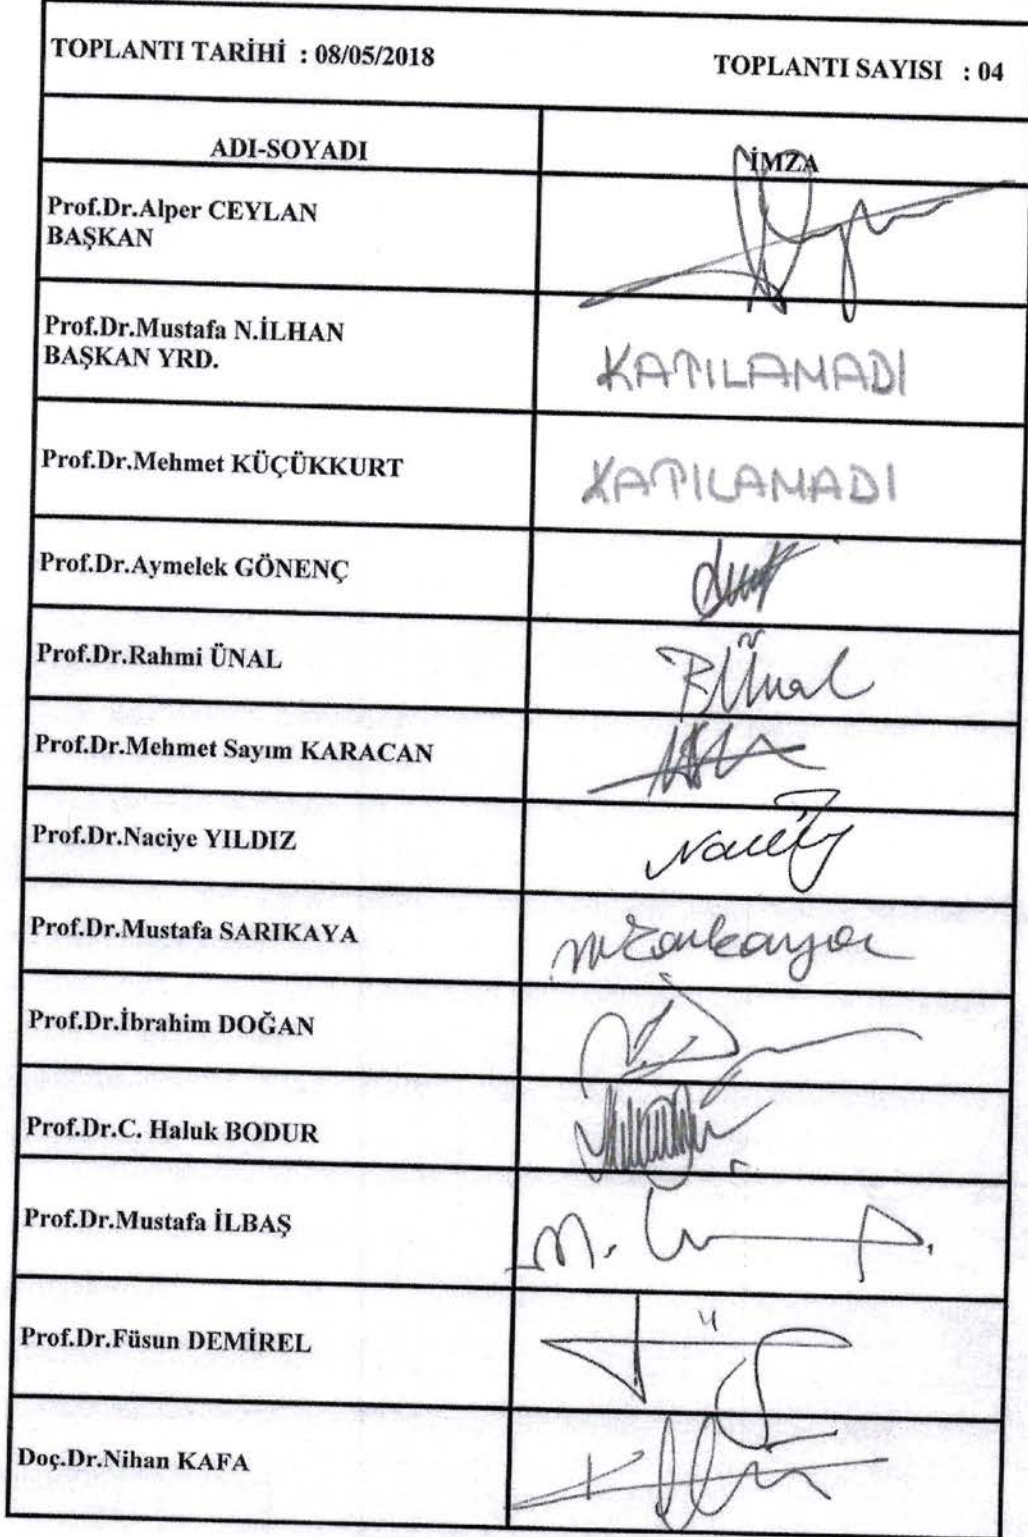 TOPLANTI TARİHİ : 08/05/2018 TOPLANTI SAYISI : 04
ADI-SOYADI İMZA
Prof.Dr.Alper CEYLAN
BAŞKAN
Prof.Dr.Mustafa N.İLHAN
BAŞKAN YRD. KATILAMADI
Prof.Dr.Mehmet KÜÇÜKKURT KATILAMADI
Prof.Dr.Aymelek GÖNENÇ
Prof.Dr.Rahmi ÜNAL RÜnal
Prof.Dr.Mehmet Sayım KARACAN
Prof.Dr.Naciye YILDIZ
Prof.Dr.Mustafa SARIKAYA
Prof.Dr.İbrahim DOĞAN
Prof.Dr.C. Haluk BODUR
Prof.Dr.Mustafa İLBAŞ
Prof.Dr.Füsun DEMİREL
Doç.Dr.Nihan KAFA